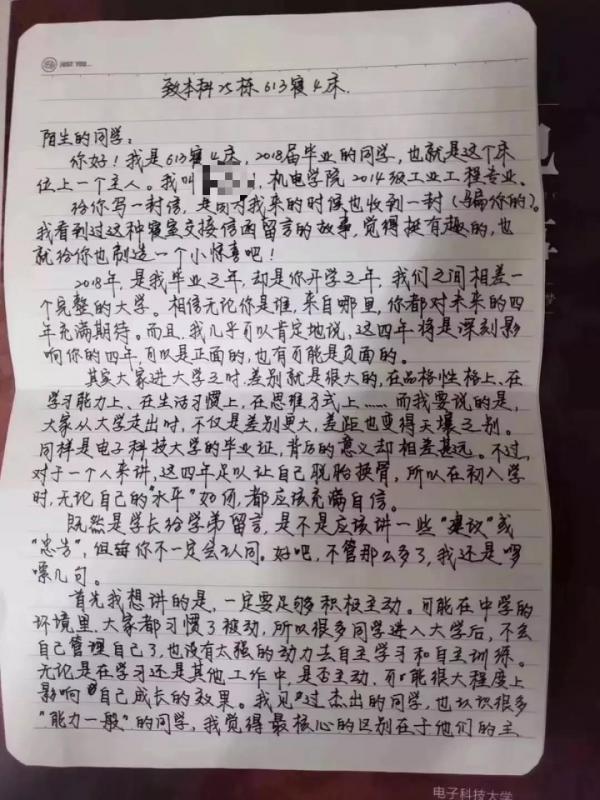 JUST YOU...
致本科25栋613寝4床.
陌生的同学:
你好!我是613寝4床,2018届毕业的同学,也就是这个床
位上一个主人。我叫,机电学院2014级工业工程专业.
给你写一封信,是因为我来的时候也收到一封(骗你的)。
我看到过这种寝室交接信函留言的故事,觉得挺有趣的,也
就给你也制造一个小惊喜吧!
2018年,是我毕业之年,却是你开学之年,我们之间相差一
个完整的大学。相信无论你是谁,来自哪里,你都对未来的四
年充满期待。而且,我几乎可以肯定地说,这四年将是深刻影
响你的四年,可以是正面的,也有可能是负面的。
其实大家进大学之时,差别就是很大的,在品格性格上、在
学习能力上、在生活习惯上,在思维方式上……而我要说的是,
大家从大学走出时,不仅是差别更大,差距也变得天壤之别。
同样是电子科技大学的毕业证,背后的意义却相差甚远。不过,
对于一个人来讲,这四年足以让自己脱胎换骨,所以在初入学
时,无论自己的"水平"如何,都应该充满自信。
既然是学长给学弟留言,是不是应该讲一些"建议"或
"忠告",但每你不一定会认同。好吧,不管那么多了,我还是啰
嗦几句。
首先我想讲的是,一定要足够积极主动。可能在中学的
环境里,大家都习惯了被动,所以很多同学进入大学后,不会
自己管理自己了,也没有太强的动力去自主学习和自主训练。
无论是在学习还是其他工作中,是否主动,可能很大程度上
影响自己成长的效果。我见过杰出的同学,也认识很多
"能力一般"的同学,我觉得最核心的区别在于他们的主
电子科技大学